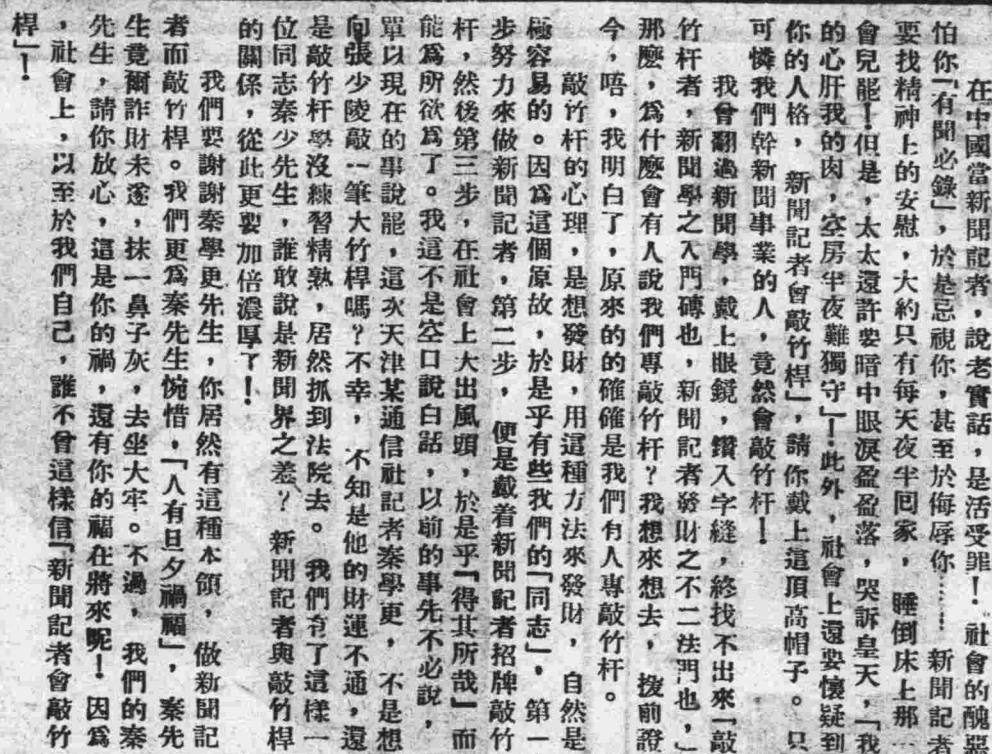 在中國當新聞記者，說老實話，是活受罪！社會的醜惡
怕你「有聞必錄」，於是忌視你，甚至於侮辱你……新聞記者
要找精神上的安慰，大約只有每天夜半回家，睡倒床上那一
會兒罷！但是，太太還許要暗中眼淚盈盈落，哭訴皇天，「我
的心肝我的肉，空房半夜難獨守」！此外，社會上還要懷疑到
你的人格，新聞記者會敲竹桿」，請你戴上這頂高帽子。只
可憐我們幹新聞事業的人，竟然會敲竹杆！
我曾翻過新聞學，戴上眼鏡，鑽入字縫，終找不出來「敲
竹杆者，新聞學之入門磚也，新聞記者發財之不二法門也，」
那麼，爲什麼會有人說我們專敲竹杆？我想來想去，援前證
今，唔，我明白了，原來的的確確是我們有人專敲竹杆。
敲竹杆的心理，是想發財，用這種方法來發財，自然是
極容易的。因爲這個原故，於是乎有些我們的「同志」，第一
步努力來做新聞記者，第二步，便是戴着新聞記者招牌敲竹
杆，然後第三步，在社會上大出風頭，於是乎「得其所哉」而
能爲所欲爲了。我這不是空口說白話，以前的事先不必說，
單以現在的事說罷，這次天津某通信社記者秦學更，不是想
向張少陵敲一筆大竹桿嗎？不幸，不知是他的財運不通，還
是敲竹杆學沒練習精熟，居然抓到法院去。我們有了這樣一
位同志秦少先生，誰敢說是新聞界之羞？新聞記者與敲竹桿
的關係，從此更要加倍濃厚了！
我們要謝謝秦學更先生，你居然有這種本領，做新聞記
者而敲竹桿。我們更爲秦先生惋惜，「人有旦夕禍福」，秦先
生竟爾詐財未遂，抹一鼻子灰，去坐大牢。不過，我們的秦
先生，請你放心，這是你的禍，還有你的福在將來呢！因爲
，社會上，以至於我們自己，誰不曾這樣信「新聞記者會敲竹
桿」！